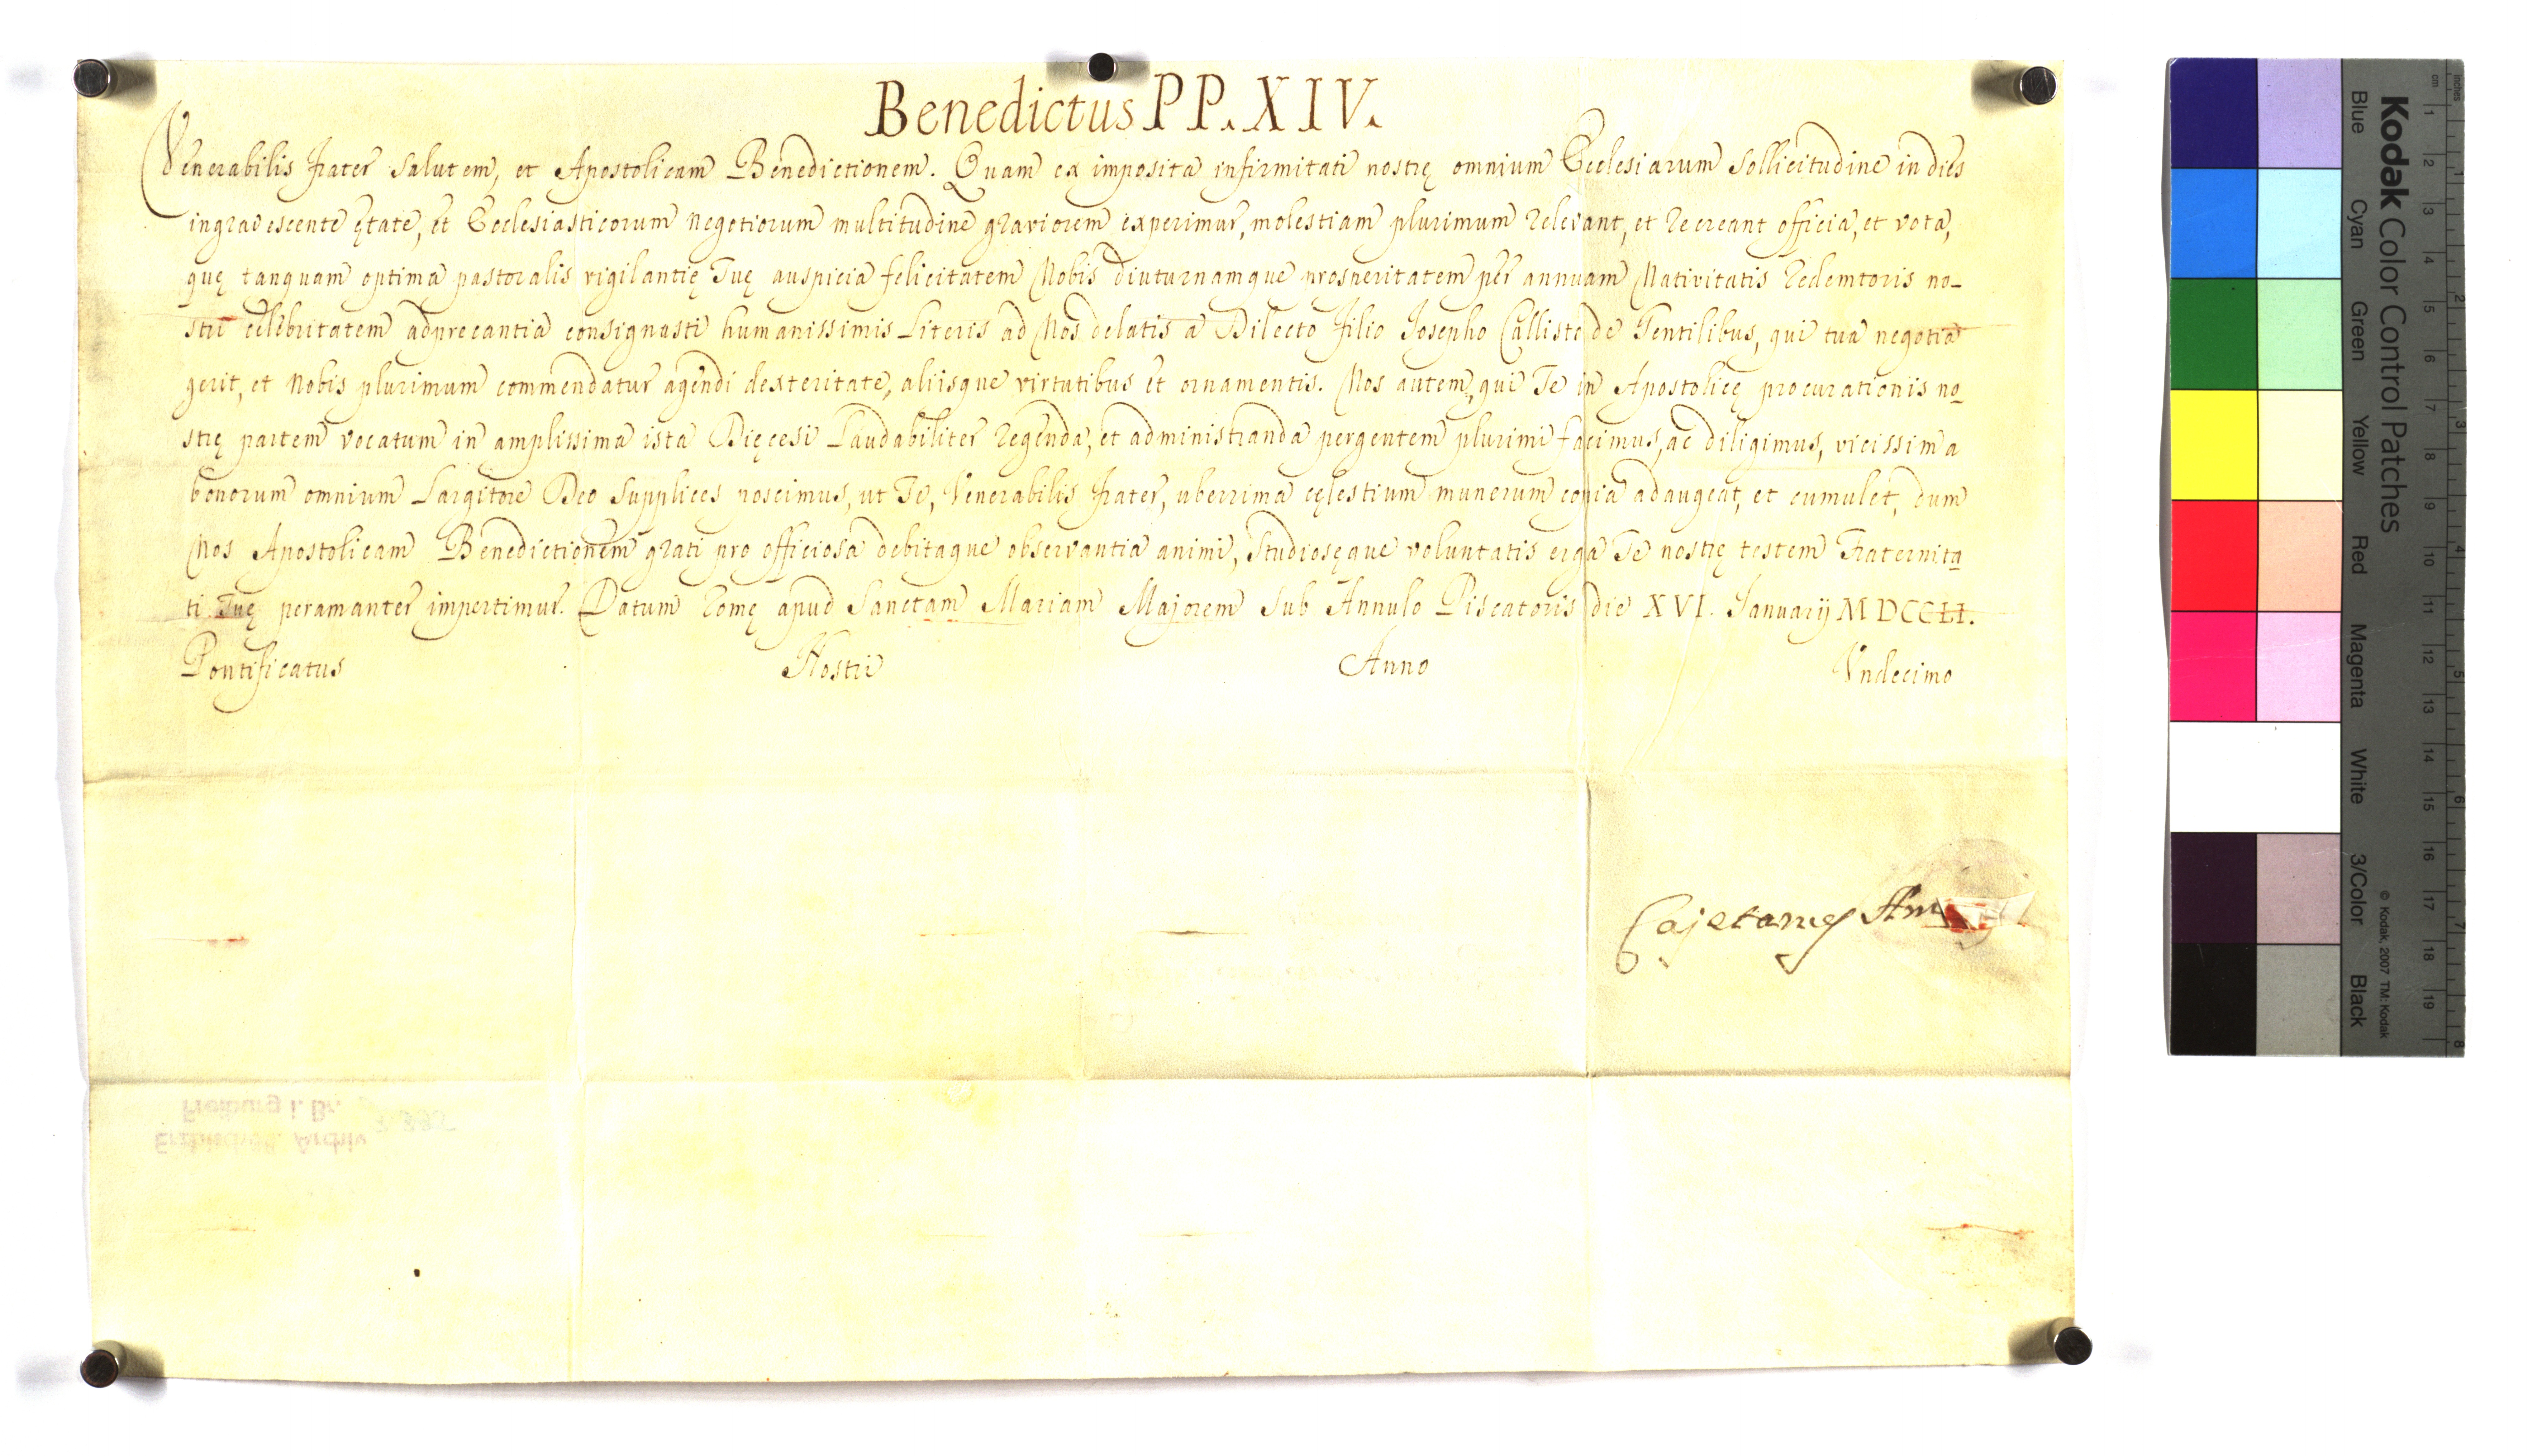 Benedictus PP. XIV.
Venerabilis Frater Salutem, et Apostolicam Benedictionem. Quam ex imposita infirmitati nostrę omnium Ecclesiarum Sollicitudine in dies
ingravescente ętate, et Ecclesiasticorum negotiorum multitudine graviorem experimur, molestiam plurimum relevant, et recreant officia, et vota,
quę tanquam optima pastoralis vigilantię Tuę auspicia felicitatem Nobis diuturnamque prosperitatem per annuam Nativitatis Redemtoris no-
stri celebritatem adprecantia consignasti humanissimis Literis ad Nos delatis a Dilecto Filio Josepho Callisto de Gentilibus, qui tua negotia
gerit, et Nobis plurimum commendatur agendi dexteritate, aliisque virtutibus et ornamentis. Nos autem, qui Te in Apostolicę procurationis no
strę partem vocatum in amplissima ista Dięcesi Laudabiliter regenda, et administranda pergentem plurimi facimus, ac diligimus, vicissim a
bonorum omnium Largitore Deo Supplices poscimus, ut Te, Venerabilis Frater, uberrima cęlestium munerum copia adaugeat, et cumulet, dum
Nos Apostolicam Benedictionem grati pro officiosa debitaque observantia animi, Studiosęque voluntatis erga Te nostrę testem Fraternita
ti Tuę peramanter impertimur. Datum Romę apud Sanctam Mariam Majorem Sub Annulo Piscatoris die XVI. Januarij MDCCLI.
Pontificatus Nostri Anno Undecimo
Cajetanus Am
Erzbischöfl. Archiv
Freiburg i. Br.
Kodak Color Control Patches
© Kodak, 2007 TM: Kodak
Blue Cyan Green Yellow Red Magenta White 3/Color Black
cm 1 2 3 4 5 6 7 8 9 10 11 12 13 14 15 16 17 18 19
Inches 1 2 3 4 5 6 7 8